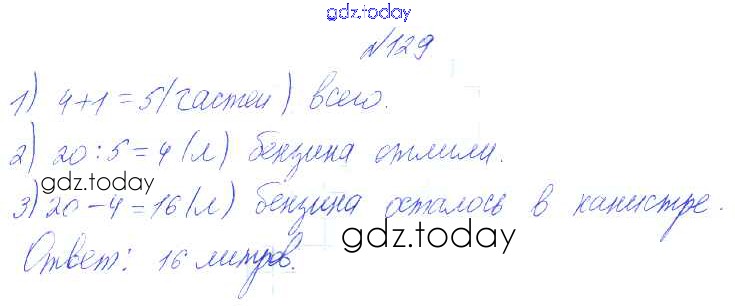 gdz.today
№129
1) 4+1=5(частей) всего.
2) 20:5=4(л) бензина отлили.
gdz.today
3) 20-4=16(л) бензина осталось в канистре.
gdz.today
Ответ: 16 литров.